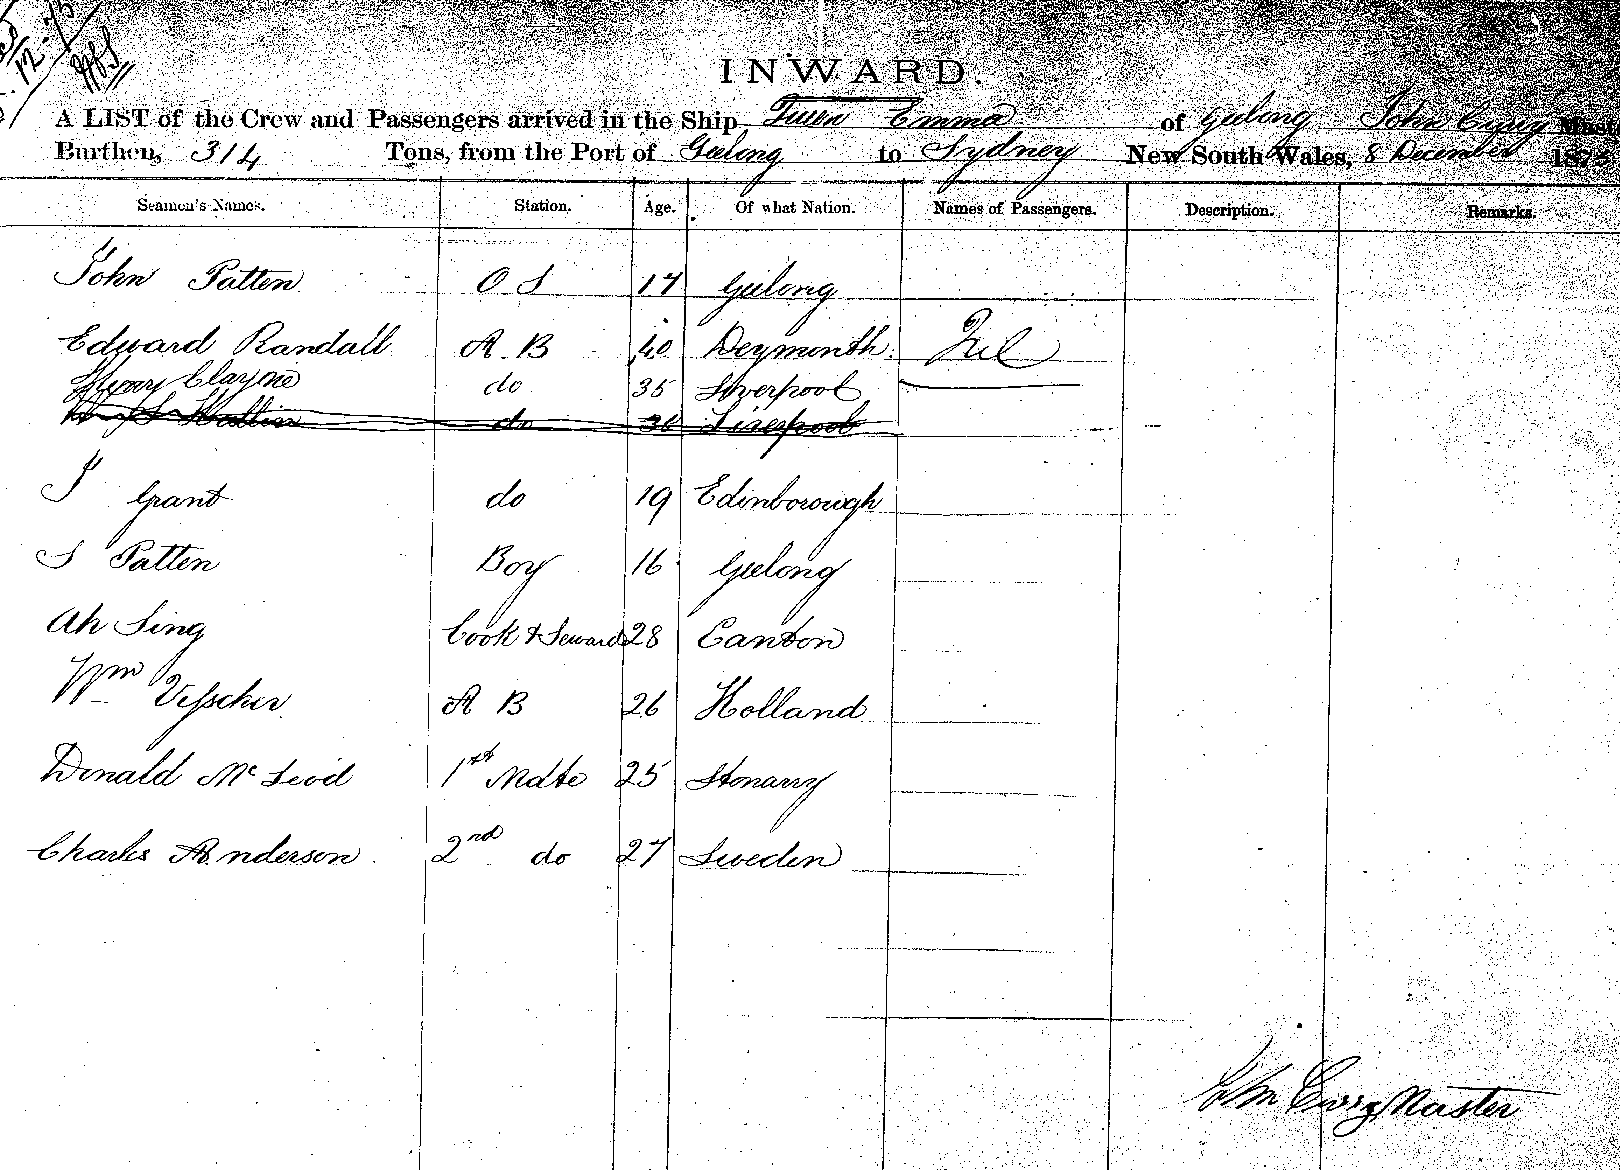 12-75
INWARD.
A LIST of the Crew and Passengers arrived in the Ship Queen Emma of Geelong John Master
Burthen, 314 Tons, from the Port of Geelong to Sydney New South Wales, 8 December 1875
Seamen's Names. Station. Age. Of what Nation. Names of Passengers. Description. Remarks.
John Patten O S 17 Geelong
Edward Randall A B 40 Weymouth Nil
Clayone do 35 Liverpool
do 30 Liverpool
J Grant do 19 Edinborough
S Patten Boy 16 Geelong
Ah Sing Cook & Steward 28 Canton
Wm Vesscher A B 26 Holland
Donald McLeod 1st Mate 25
Charles Anderson 2nd do 27 Sweden
John Master